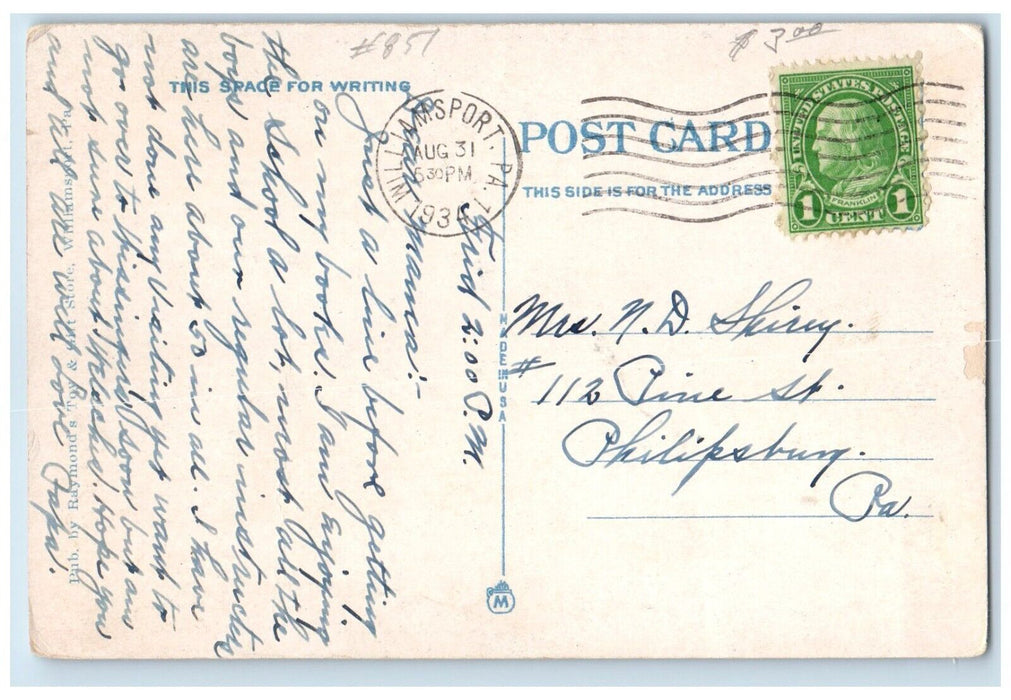 #857
$3.00
THIS SPACE FOR WRITING
POST CARD
THIS SIDE IS FOR THE ADDRESS
WILLIAMSPORT, PA.
AUG 31
5 30 PM
1934
UNITED STATES POSTAGE
FRANKLIN
1 CENT 1
MADE IN USA
M
Pub. by Raymond's Toy & Gift Store, Williamsport, Pa.
Frid 2:00 P.M.
Mama:-
Just a line before getting
on my books. I am enjoying
the School a lot, most all the
boys and our regular instructor
are here about 60 in all. I have
not done any visiting yet want to
go over to soon but am
not sure about. Hope you
and all are well. Love Papa.
Mrs. N. D. Shirey.
# 112 Pine St.
Philipsburg.
Pa.